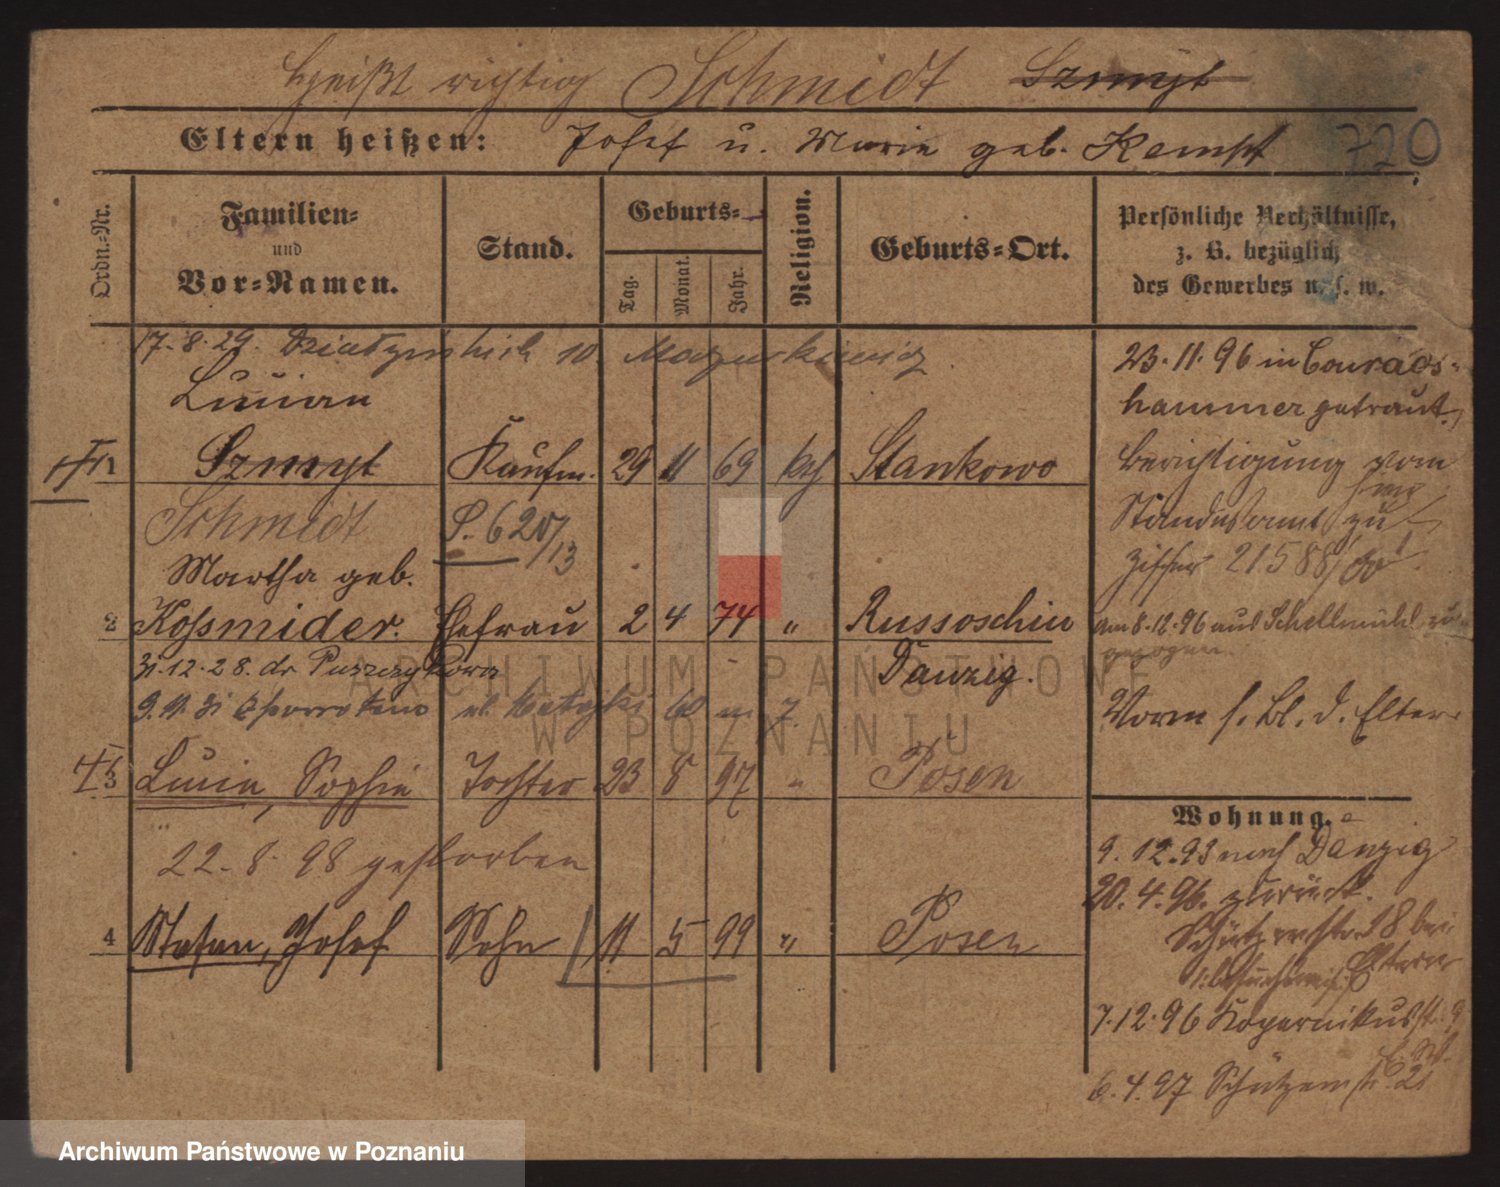 heißt richtig Schmidt Szmyt
Eltern heißen: Josef u. Marie geb. Kempf 720
Ordn.=Nr.
Familien=
und
Vor=Namen.
Stand.
Geburts=
Tag.
Monat.
Jahr.
Religion.
Geburts=Ort.
Persönliche Verhältnisse,
z. B. bezüglich
des Gewerbes u. s. w.
17.8.29. 10
Lucian
1 Szmyt Kaufm. 29 11 69 kth Stankowo
Schmidt
Martha geb.
2 Kossmider. Ehefrau 2 4 74 " Russoschin
Danzig.
31.12.28. dr
9.11.31 ul. Matejki 60 m 7.
3 Lucie, Sophie Tochter 23 8 97 " Posen
22.8.98 gestorben
4 Stefan, Josef Sohn 11 5 99 " Posen
23.11.96 in Conrads=
hammer getraut.
Berichtigung vom
Standesamt zu
Ziffer 21588/00
am 8.12.96 aus Schellmühl zu=
gezogen.
Vorm s. Bl. d. Eltern
Wohnung.
9.12.93 nach Danzig
20.4.96. zurück.
Schützenstr. 18 bei
Eltern
7.12.96 Kopernikusstr. 9
6.4.97 Schützenstr. 21
ARCHIWUM PAŃSTWOWE
W POZNANIU
Archiwum Państwowe w Poznaniu